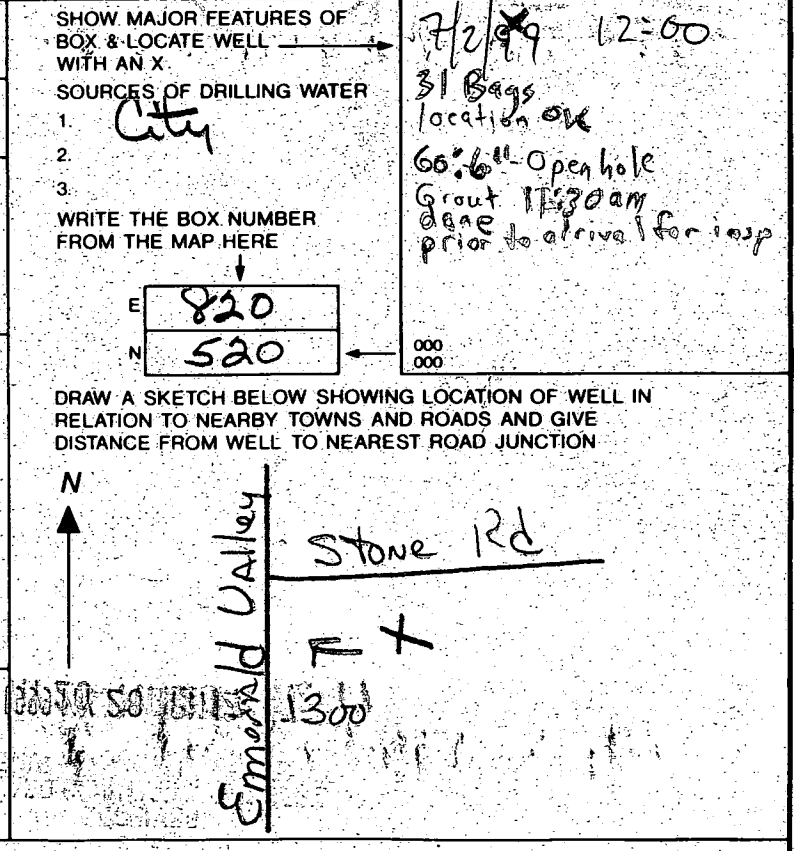 SHOW MAJOR FEATURES OF
BOX & LOCATE WELL
WITH AN X
SOURCES OF DRILLING WATER
1. City
2.
3.
WRITE THE BOX NUMBER
FROM THE MAP HERE
E 820
N 520
7/2/99 12:00
31 Bags
location OK
60'-6" Open hole
Grout 11:30am
done
prior to arrival for insp
000
000
DRAW A SKETCH BELOW SHOWING LOCATION OF WELL IN
RELATION TO NEARBY TOWNS AND ROADS AND GIVE
DISTANCE FROM WELL TO NEAREST ROAD JUNCTION
N
Emerald Valley
Stone Rd
X
1300